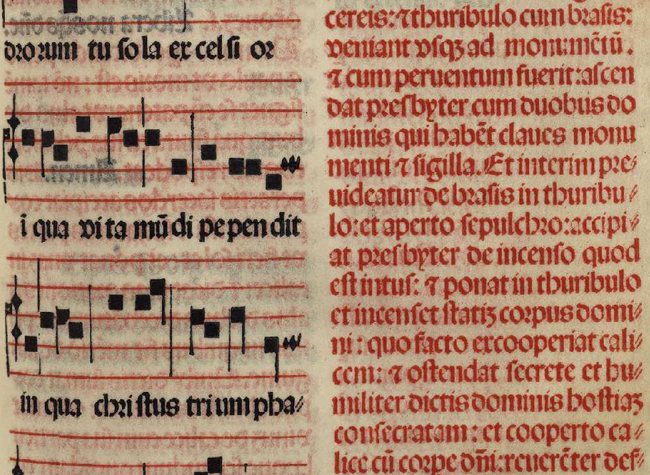 dro rum tu so la ex cel si or
ĩ qua vi ta mũ di pe pen dit
in qua chri stus tri um pha⸗
cereis: ⁊ thuribulo cum brasis:
veniant vsqꝫ ad monumẽtũ.
⁊ cum peruentum fuerit: ascen
dat presbyter cum duobus do
minis qui habẽt claues monu
menti ⁊ sigilla. Et interim pre⸗
uideatur de brasis in thuribu⸗
lo: et aperto sepulchro: accipi⸗
at presbyter de incenso quod
est intus: ⁊ ponat in thuribulo
et incenset statiꝫ corpus domi⸗
ni: quo facto excooperiat cali⸗
cem: ⁊ ostendat secrete et hu⸗
militer dictis dominis hostiaꝫ
consecratam: et cooperto ca⸗
lice cũ corpe dñi: reuerẽter des⸗